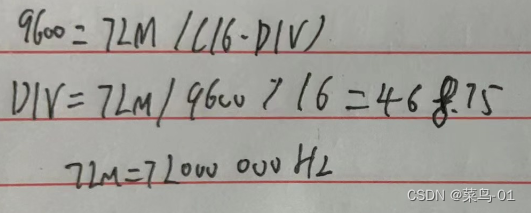 9600 = 72M / (16·DIV)
DIV = 72M / 9600 / 16 = 468.75
72M = 72000 000 HZ
CSDN @菜鸟-01